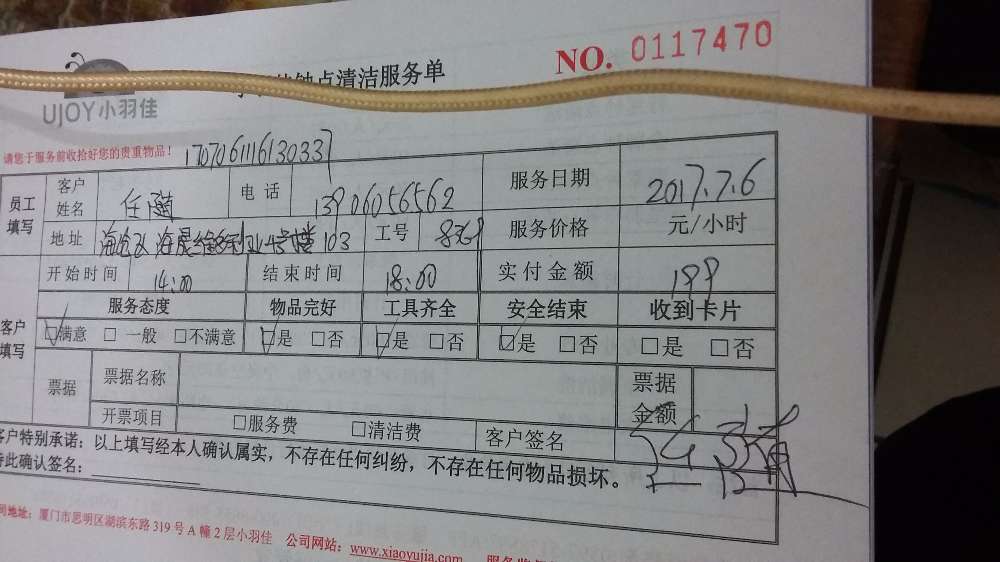 NO. 0117470
钟点清洁服务单
UJOY小羽佳
请您于服务前收拾好您的贵重物品！
员工填写 客户姓名 任 电话 13906056562 服务日期 2017.7.6
地址 海沧区海晟维多利亚4号楼103 工号 服务价格 元/小时
开始时间 14:00 结束时间 18:00 实付金额 199
客户填写 服务态度 物品完好 工具齐全 安全结束 收到卡片
☑满意 □一般 □不满意 ☑是 □否 ☑是 □否 ☑是 □否 □是 □否
票据 票据名称 票据金额
开票项目 □服务费 □清洁费 客户签名
客户特别承诺：以上填写经本人确认属实，不存在任何纠纷，不存在任何物品损坏。
特此确认签名：
司地址：厦门市思明区湖滨东路319号A幢2层小羽佳 公司网站：www.xiaoyujia.com